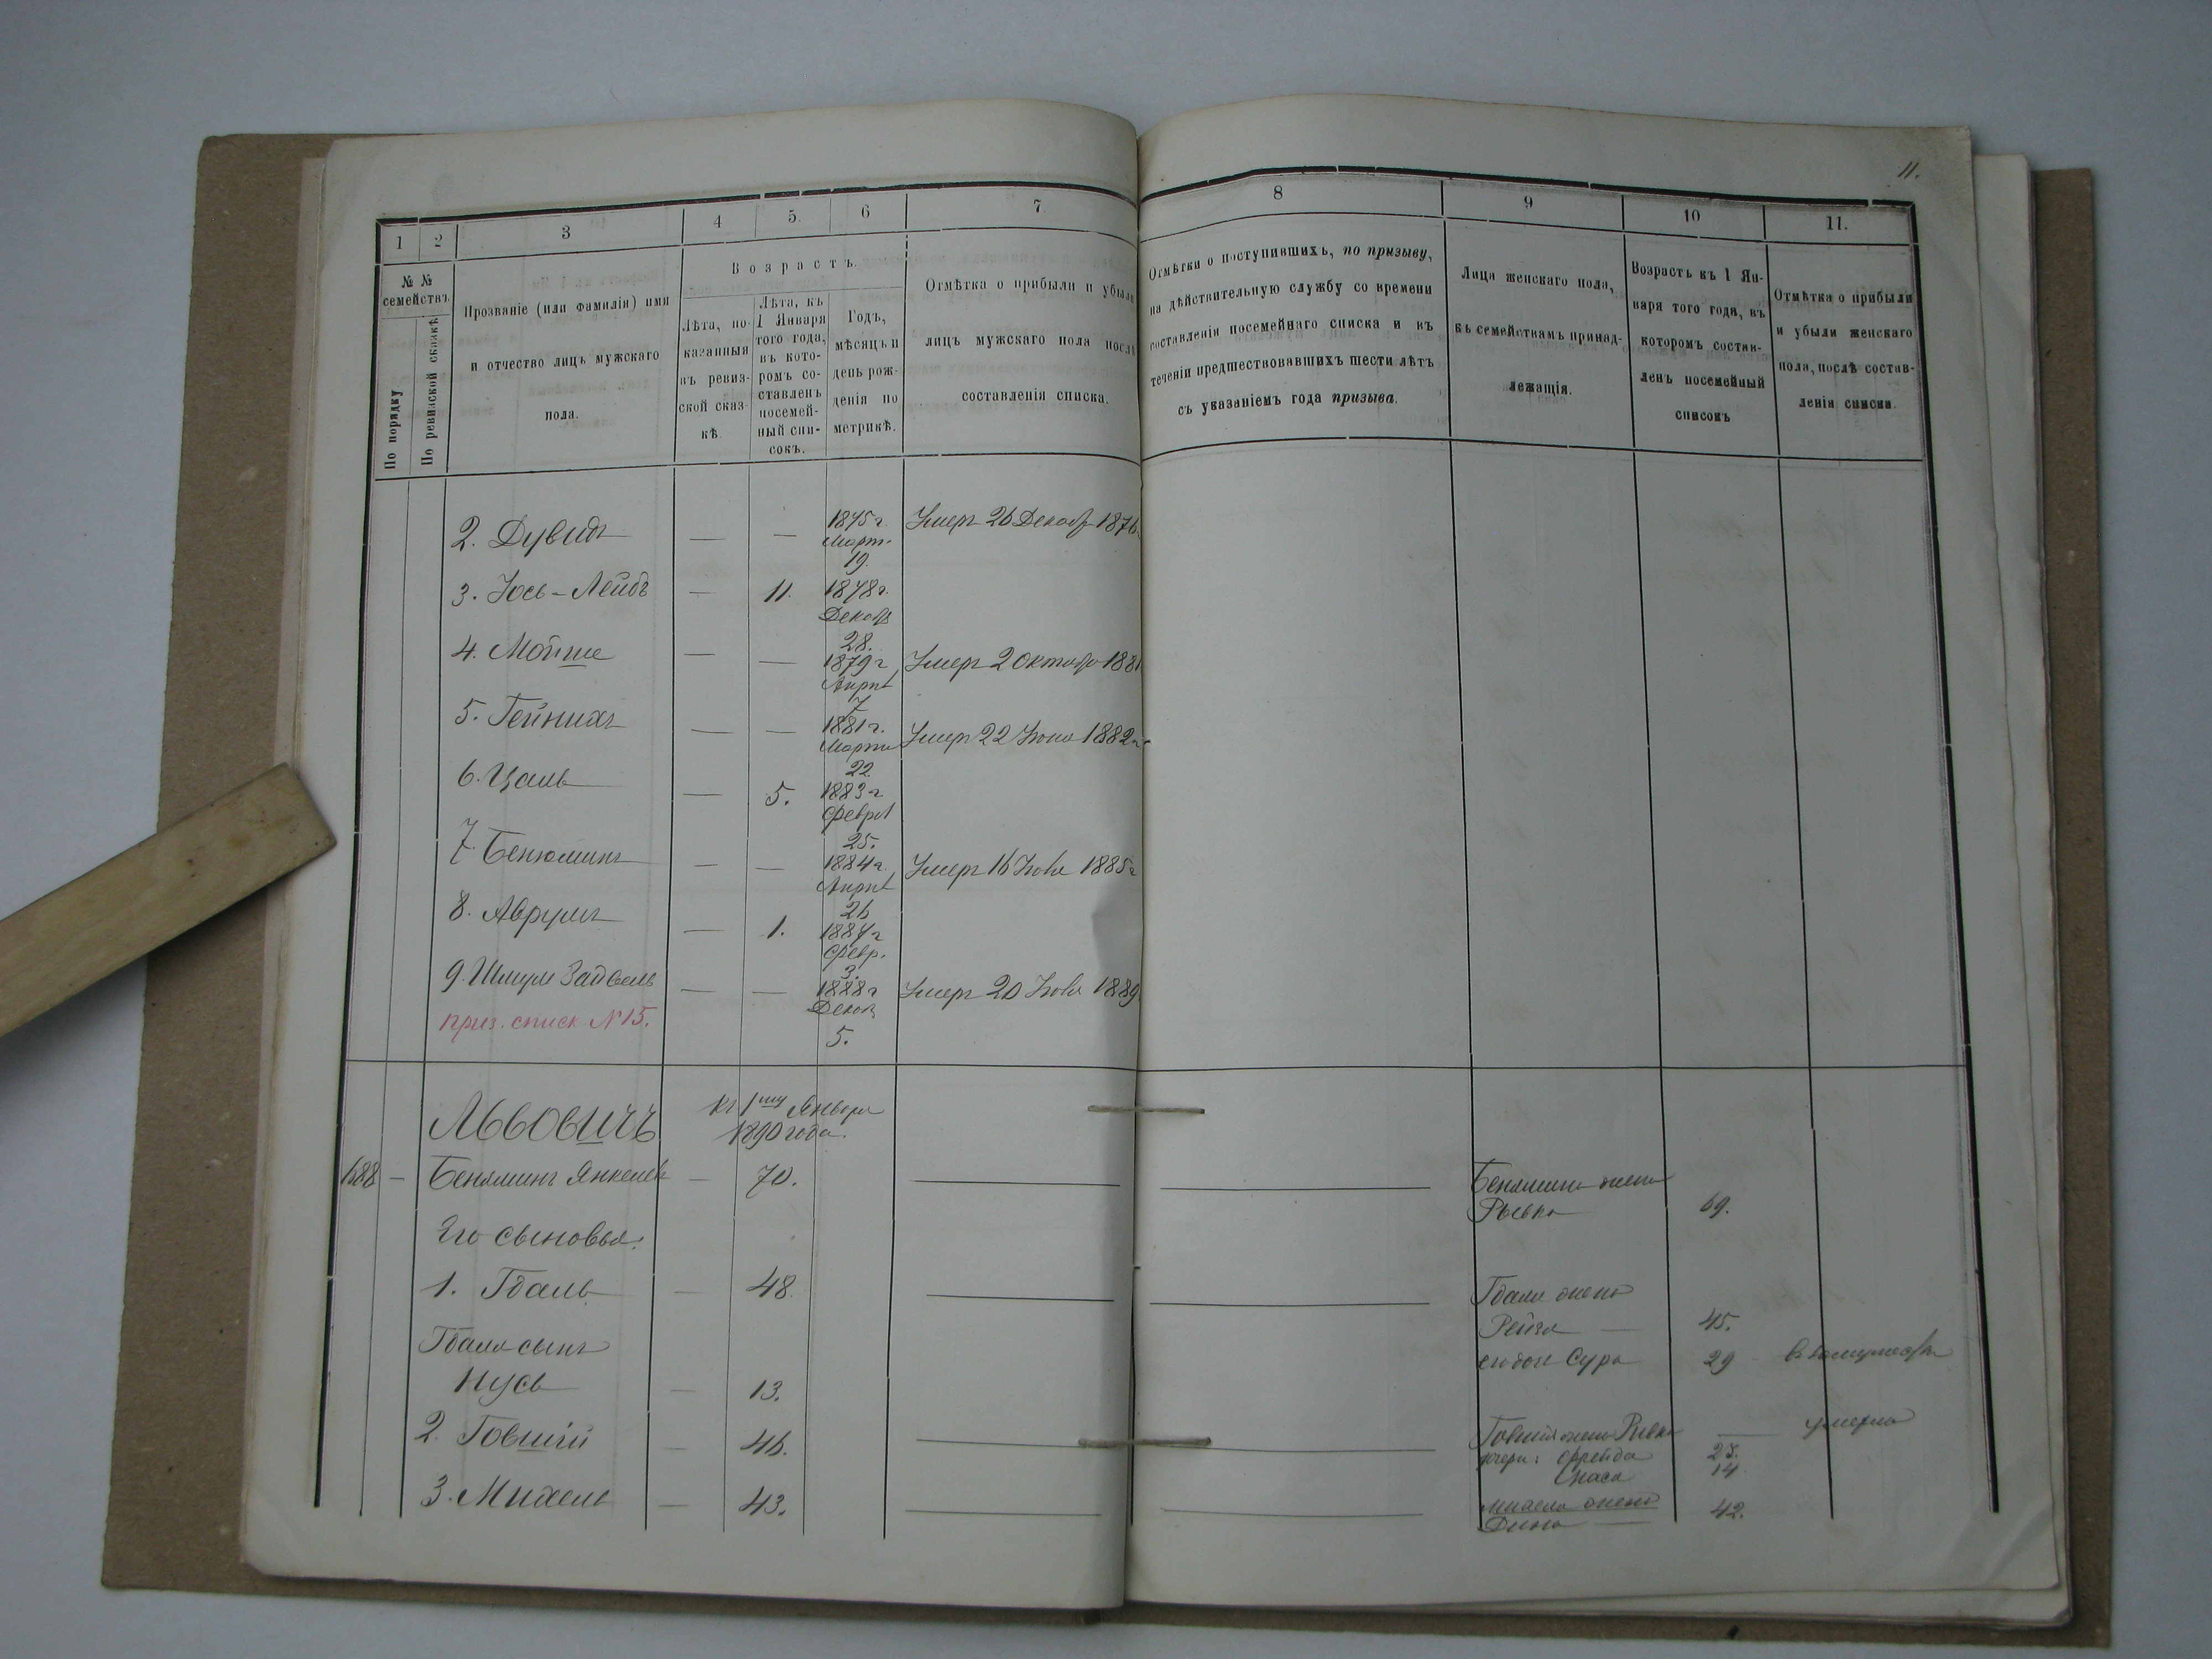 11.
1 2 3 4 5. 6 7 8 9 10 11.
№ № семействъ.
По порядку
По ревизской сказкѣ
Прозваніе (или фамилія) имя
и отчество лицъ мужскаго
пола.
Возрастъ.
Лѣта, по-
казанныя
въ ревиз-
ской сказ-
кѣ.
Лѣта, къ
1 Января
того года,
въ кото-
ромъ со-
ставленъ
посемей-
ный спи-
сокъ.
Годъ,
мѣсяцъ и
день рож-
денія по
метрикѣ.
Отмѣтка о прибыли и убыли
лицъ мужскаго пола послѣ
составленія списка.
Отмѣтка о поступившихъ, по призыву,
на дѣйствительную службу со времени
составленія посемейнаго списка и въ
теченіи предшествовавшихъ шести лѣтъ
съ указаніемъ года призыва.
Лица женскаго пола,
къ семействамъ принад-
лежащія.
Возрасть къ 1 Ян-
варя того года, въ
которомъ состав-
ленъ посемейный
списокъ
Отмѣтка о прибыли
и убыли женскаго
пола, послѣ состав-
ленія списка.
2. Дувидъ — — 1875 г. Март. 19. Умеръ 26 Декабр 1876
3. Іось-Лейбъ — 11. 1878 г. Декабр 28.
4. Мойше — — 1879 г Април 7 Умеръ 2 Октября 1881
5. Гейнихъ — — 1881 г. Марта 22. Умеръ 22 Іюня 1882 г
6. Цаль — 5. 1883 г Феврал 25.
7. Бенюминъ — — 1884 г Април 26 Умеръ 16 Іюля 1885 г
8. Аврумъ — 1. 1887 г Февр. 3.
9. Шмуль Зайвель — — 1888 г Декаб. 5. Умеръ 20 Іюля 1889
приз. списк №15.
Львовичъ къ 1му Января
1890 года.
688 — Беняминъ Янкелев — 70. Бенямина жена
Рывка 69.
Его сыновья:
1. Гдаль — 48. Гдаля жена
Рейзя — 45.
Гдаля сынъ его дочь Сура 29 в замужестве
Нусь — 13.
2. Говшій — 46. Говшія жена Ривка — умерла
дочери: Фрейда 23.
Хася 14
3. Михель — 43. Михеля жена
Дина — 42.